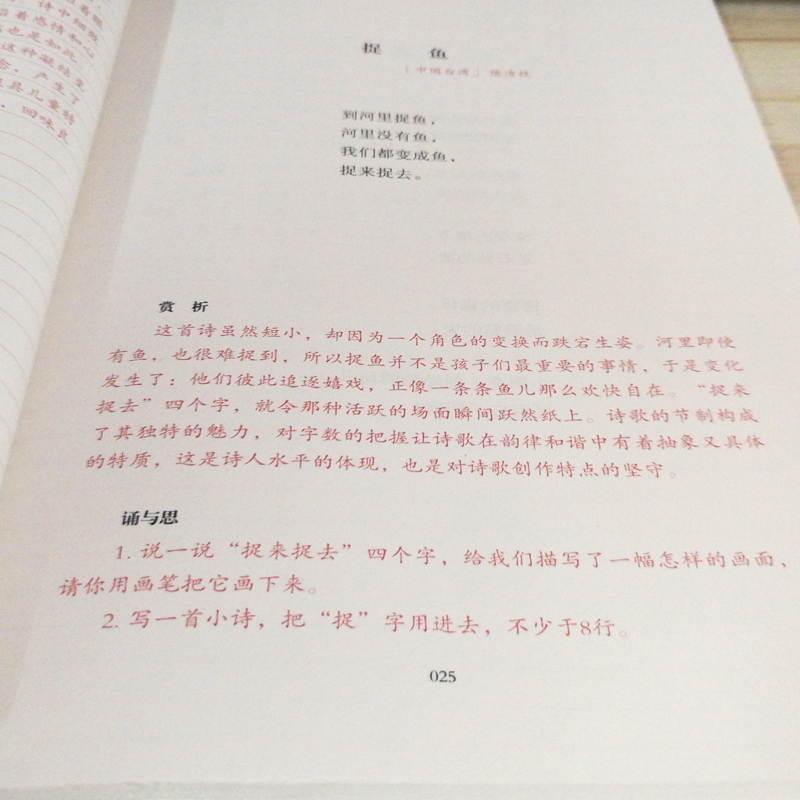 诗中细腻
着感情和心
也是如此
这种凝结着
产生了
具儿童特
回味良
捉 鱼
〔中国台湾〕 林清林
到河里捉鱼,
河里没有鱼,
我们都变成鱼,
捉来捉去。
赏 析
这首诗虽然短小,却因为一个角色的变换而跌宕生姿。河里即使
有鱼,也很难捉到,所以捉鱼并不是孩子们最重要的事情,于是变化
发生了:他们彼此追逐嬉戏,正像一条条鱼儿那么欢快自在。“捉来
捉去”四个字,就令那种活跃的场面瞬间跃然纸上。诗歌的节制构成
了其独特的魅力,对字数的把握让诗歌在韵律和谐中有着抽象又具体
的特质,这是诗人水平的体现,也是对诗歌创作特点的坚守。
诵与思
1. 说一说“捉来捉去”四个字,给我们描写了一幅怎样的画面,
请你用画笔把它画下来。
2. 写一首小诗,把“捉”字用进去,不少于8行。
025